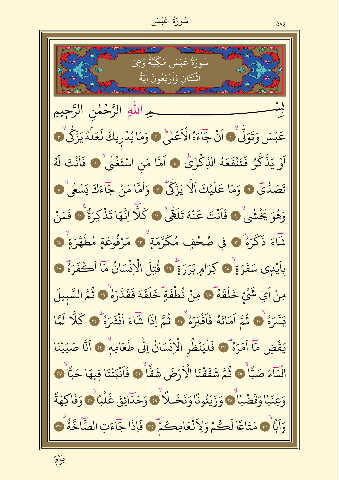 سُورَةُ عَبَسَ
٥٨٤
سُورَةُ عَبَسَ مَكِّيَّةٌ وَهِيَ
اثْنَتَانِ وَأَرْبَعُونَ آيَةً
بِسْمِ اللّٰهِ الرَّحْمٰنِ الرَّحِيمِ
عَبَسَ وَتَوَلّٰىۙ ﴿١﴾ اَنْ جَٓاءَهُ الْاَعْمٰىۜ ﴿٢﴾ وَمَا يُدْرٖيكَ لَعَلَّهُ يَزَّكّٰىۙ ﴿٣﴾
اَوْ يَذَّكَّرُ فَتَنْفَعَهُ الذِّكْرٰىۜ ﴿٤﴾ اَمَّا مَنِ اسْتَغْنٰىۙ ﴿٥﴾ فَاَنْتَ لَهُ
تَصَدّٰىۜ ﴿٦﴾ وَمَا عَلَيْكَ اَلَّا يَزَّكّٰىۜ ﴿٧﴾ وَاَمَّا مَنْ جَٓاءَكَ يَسْعٰىۙ ﴿٨﴾
وَهُوَ يَخْشٰىۙ ﴿٩﴾ فَاَنْتَ عَنْهُ تَلَهّٰىۚ ﴿١٠﴾ كَلَّٓا اِنَّهَا تَذْكِرَةٌۚ ﴿١١﴾ فَمَنْ
شَٓاءَ ذَكَرَهُۢ ﴿١٢﴾ فٖي صُحُفٍ مُكَرَّمَةٍۙ ﴿١٣﴾ مَرْفُوعَةٍ مُطَهَّرَةٍۙ ﴿١٤﴾
بِاَيْدٖي سَفَرَةٍۙ ﴿١٥﴾ كِرَامٍ بَرَرَةٍۜ ﴿١٦﴾ قُتِلَ الْاِنْسَانُ مَٓا اَكْفَرَهُۜ ﴿١٧﴾
مِنْ اَيِّ شَيْءٍ خَلَقَهُۜ ﴿١٨﴾ مِنْ نُطْفَةٍۜ خَلَقَهُ فَقَدَّرَهُۙ ﴿١٩﴾ ثُمَّ السَّبٖيلَ
يَسَّرَهُۙ ﴿٢٠﴾ ثُمَّ اَمَاتَهُ فَاَقْبَرَهُۙ ﴿٢١﴾ ثُمَّ اِذَا شَٓاءَ اَنْشَرَهُۜ ﴿٢٢﴾ كَلَّا لَمَّا
يَقْضِ مَٓا اَمَرَهُۜ ﴿٢٣﴾ فَلْيَنْظُرِ الْاِنْسَانُ اِلٰى طَعَامِهٖۙ ﴿٢٤﴾ اَنَّا صَبَبْنَا
الْمَٓاءَ صَبًّاۙ ﴿٢٥﴾ ثُمَّ شَقَقْنَا الْاَرْضَ شَقًّاۙ ﴿٢٦﴾ فَاَنْبَتْنَا فٖيهَا حَبًّاۙ ﴿٢٧﴾
وَعِنَبًا وَقَضْبًاۙ ﴿٢٨﴾ وَزَيْتُونًا وَنَخْلًاۙ ﴿٢٩﴾ وَحَدَٓائِقَ غُلْبًاۙ ﴿٣٠﴾ وَفَاكِهَةً
وَاَبًّاۙ ﴿٣١﴾ مَتَاعًا لَكُمْ وَلِاَنْعَامِكُمْۜ ﴿٣٢﴾ فَاِذَا جَٓاءَتِ الصَّٓاخَّةُۘ ﴿٣٣﴾
يَوْمَ